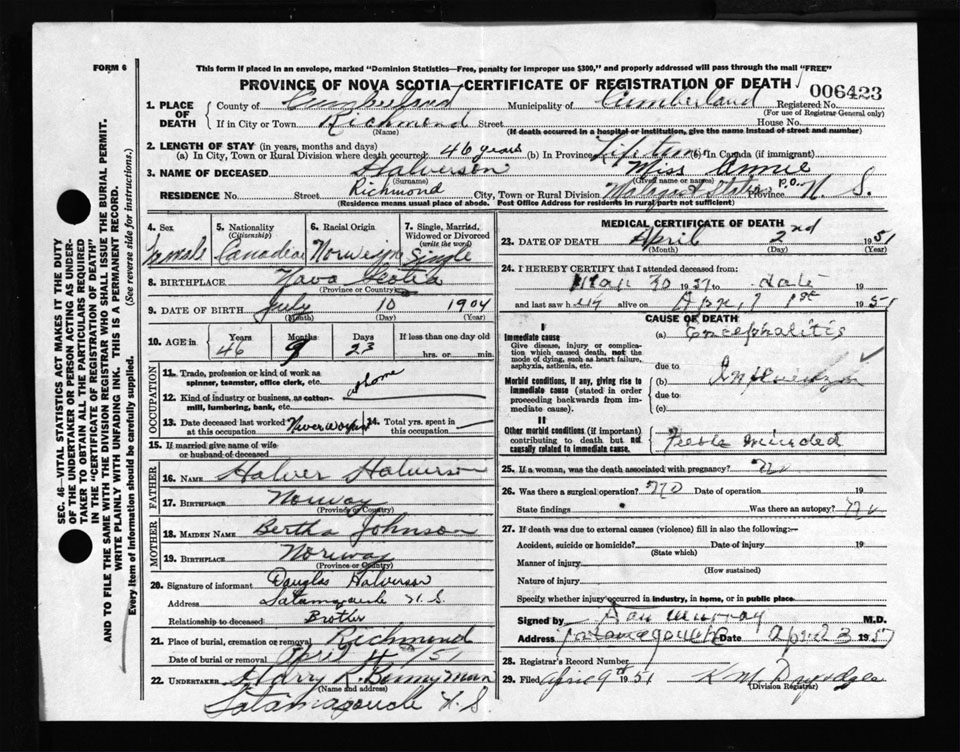 FORM 6
This form if placed in an envelope, marked "Dominion Statistics—Free, penalty for improper use $300," and properly addressed will pass through the mail "FREE"
PROVINCE OF NOVA SCOTIA—CERTIFICATE OF REGISTRATION OF DEATH
006423
1. PLACE OF DEATH County of Cumberland Municipality of Cumberland Registered No.
(For use of Registrar General only)
If in City or Town Richmond Street House No.
(Name) (If death occurred in a hospital or institution, give the name instead of street and number)
2. LENGTH OF STAY (in years, months and days)
(a) In City, Town or Rural Division where death occurred 46 years (b) In Province Lifetime (c) In Canada (if immigrant)
3. NAME OF DECEASED Halverson Miss Annie
(Surname) (Given name or names)
RESIDENCE No. Richmond Street City, Town or Rural Division P.O. Province N. S.
(Residence means usual place of abode. Post Office Address for residents in rural parts not sufficient)
4. Sex Female
5. Nationality (Citizenship) Canadian
6. Racial Origin Norwegn
7. Single, Married, Widowed or Divorced (write the word) Single
8. BIRTHPLACE Nova Scotia
(Province or Country)
9. DATE OF BIRTH July 10 1904
(Month) (Day) (Year)
10. AGE in Years 46 Months Days 23 If less than one day old hrs. or min.
OCCUPATION
11. Trade, profession or kind of work as spinner, teamster, office clerk, etc. at home
12. Kind of industry or business, as cotton-mill, lumbering, bank, etc.
13. Date deceased last worked at this occupation Never worked
14. Total yrs. spent in this occupation —
15. If married give name of wife or husband of deceased
FATHER
16. NAME Halver Halverson
17. BIRTHPLACE Norway
(Province or Country)
MOTHER
18. MAIDEN NAME Bertha Johnson
19. BIRTHPLACE Norway
(Province or Country)
20. Signature of informant Douglas Halverson
Address Tatamagouche N. S.
Relationship to deceased Brother
21. Place of burial, cremation or removal Richmond
Date of burial or removal April 4th/51
22. UNDERTAKER Harry R. Bonnyman
(Name and address)
Tatamagouche N. S.
MEDICAL CERTIFICATE OF DEATH
23. DATE OF DEATH April 2nd 1951
(Month) (Day) (Year)
24. I HEREBY CERTIFY that I attended deceased from:
Mar 30 1951 to date 19
and last saw her alive on April 1st 1951
CAUSE OF DEATH
I
Immediate cause
Give disease, injury or complication which caused death, not the mode of dying, such as heart failure, asphyxia, asthenia, etc.
(a) Encephalitis
due to
Morbid conditions, if any, giving rise to immediate cause (stated in order proceeding backwards from immediate cause).
(b) Influenza
due to
(c)
II
Other morbid conditions (if important) contributing to death but not causally related to immediate cause.
Feeble minded
25. If a woman, was the death associated with pregnancy? no
26. Was there a surgical operation? no Date of operation 19
State findings Was there an autopsy? no
27. If death was due to external causes (violence) fill in also the following:—
Accident, suicide or homicide? Date of injury 19
(State which)
Manner of injury
(How sustained)
Nature of injury
Specify whether injury occurred in industry, in home, or in public place
Signed by Dan Murray M.D.
Address Tatamagouche Date April 3 1951
28. Registrar's Record Number
29. Filed April 9th 1951 K. M.
(Division Registrar)
SEC. 46—VITAL STATISTICS ACT MAKES IT THE DUTY
OF THE UNDERTAKER OR PERSON ACTING AS UNDER-
TAKER TO OBTAIN ALL THE PARTICULARS REQUIRED
IN THE "CERTIFICATE OF REGISTRATION OF DEATH"
AND TO FILE THE SAME WITH THE DIVISION REGISTRAR WHO SHALL ISSUE THE BURIAL PERMIT.
WRITE PLAINLY WITH UNFADING INK. THIS IS A PERMANENT RECORD.
Every item of information should be carefully supplied. (See reverse side for instructions.)